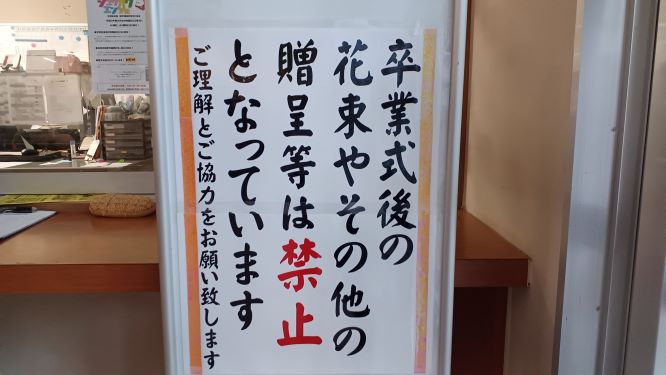 卒業式後の
花束やその他の
贈呈等は禁止
となっています
ご理解とご協力をお願い致します